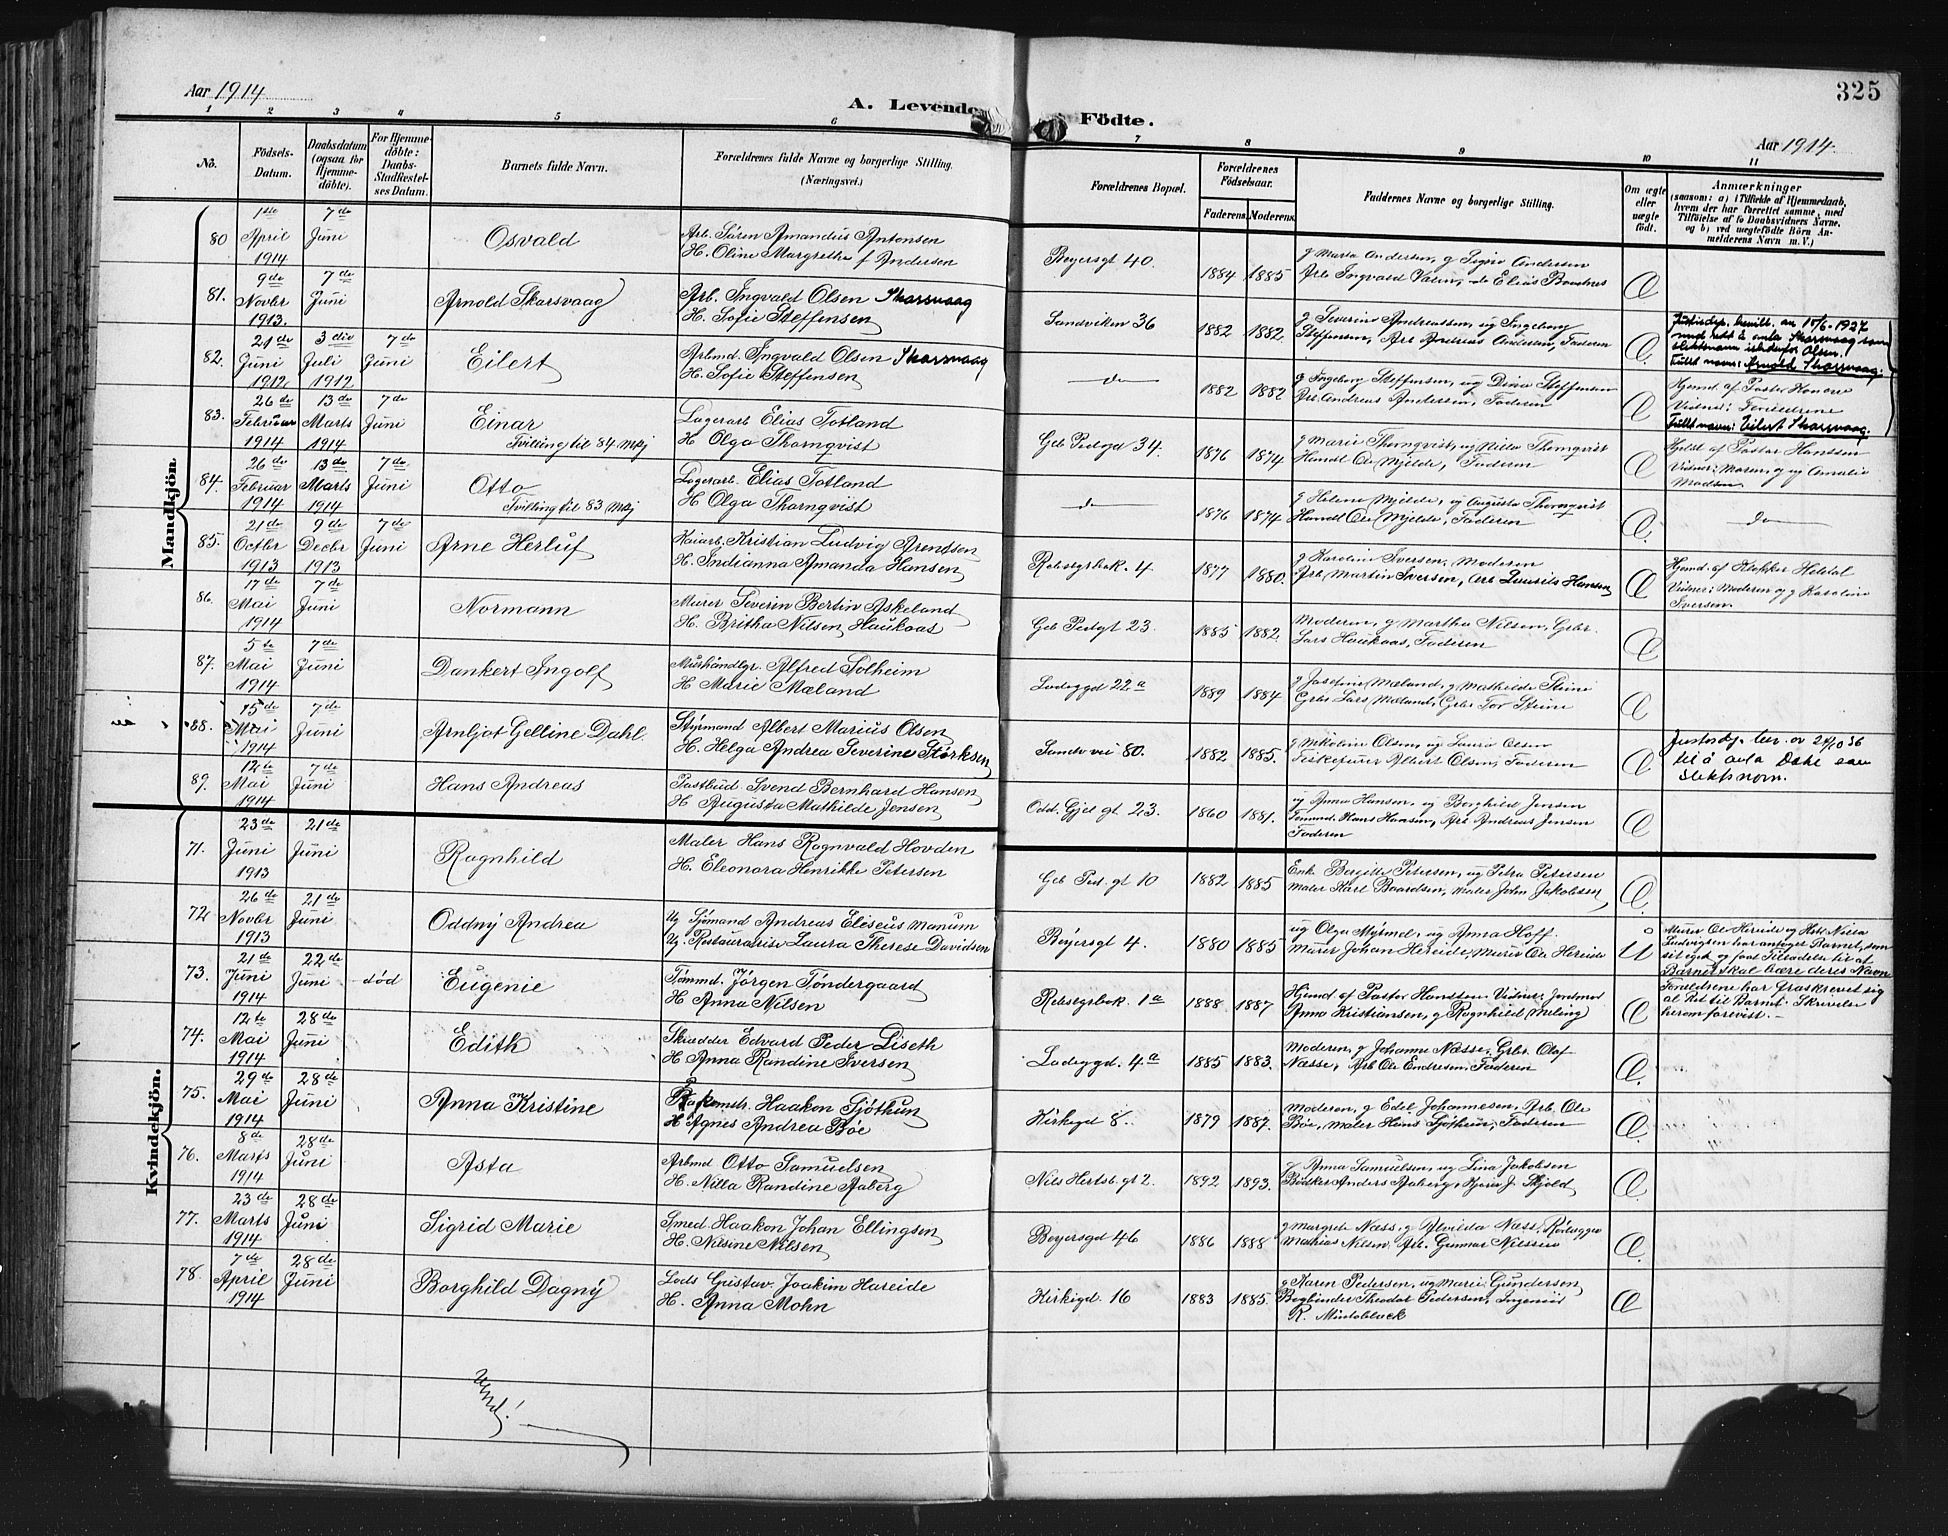 325
Aar 1914
A. Levende Födte.
Aar 1914.
1 2 3 4 5 6 7 8 9 10 11
No.
Födsels-Datum.
Daabsdatum (ogsaa for Hjemme-döbte).
For Hjemme-döbte: Daabs-Stadfæstel-ses Datum.
Barnets fulde Navn.
Forældrenes fulde Navne og borgerlige Stilling.
(Næringsvei.)
Forældrenes Bopæl.
Forældrenes Födselsaar.
Faderens. Moderens.
Faddernes Navne og borgerlige Stilling.
Om ægte eller uægte födt.
Anmærkninger
(saasom: a) i Tilfælde af Hjemmedaab, hvem der har forrettet samme, med Tilföielse af to Daabsvidners Navne. og b) ved uægtefödte Börn An-melderens Navn m. V.)
Mandkjön.
80 1ste April 1914 7de Juni Osvald
Arb. Sören Amandus Antonsen
H. Oline Margrethe f Andersen
Bøyersgt 40. 1884 1885
g Maria Andersen, g Signe Andersen
Arb Ingvald Valen, Elias Boudnes
Æ
81. 9de Novbr 1913. 7de Juni Arnold Skarsvaag
Arb. Ingvald Olsen Skarsvaag
H. Sofie Steffensen
Sandviken 36 1882 1882
g Severine Andreassen, ug Ingeborg
Steffensen, Arb Andreas Andersen, Faderen
Æ
Justisdep. bevilt. av 15/6-1927
med rett å anta Skarsvaag som
slektsnavn istedenfor Olsen.
Fullt navn: Arnold Skarsvaag.
82. 21de Juni 1912 3die Juli 1912 7de Juni Eilert
Arbmd. Ingvald Olsen Skarsvaag
H. Sofie Steffensen
do 1882 1882
g Ingeborg Steffensen, ug Dina Steffensen
Arb. Andreas Andersen, Faderen
Æ
Hjemd. af Pastor
Vidner: Forældrene
Fullt navn: Eilert Skarsvaag.
83. 26de Februar 1914 13de Marts 1914 7de Juni Einar
Tvilling til 84 Mkj
Lagerarb Elias Totland
H Olga Thornqvist
Geb Pedgd 34. 1876 1874
g Marie Thornqvist, ug Nilla Thornqvist
Handl Ole Mjelde, Faderen
Æ
Hjdt. af Pastor Hanssen
Vidner: Maren, g ug Amalie
Madsen
84. 26de Februar 1914 13de Marts 1914 7de Juni Otto
Tvilling til 83 Mkj
Lagerarb. Elias Totland
H Olga Thornqvist
do 1876 1874
g Helene Mjelde, ug Augusta Thornqvist
Handl Ole Mjelde, Faderen
Æ
do
85. 21de Octbr 1913 9de Decbr 1913 7de Juni Arne Herluf
Kaiarb. Kristian Ludvig Arentsen
H. Indianna Amanda Hansen
Rebsgrbek. 4 1877 1880.
g Karoline Iversen, Moderen
Arb Martin Iversen, Arb Laurits Hansen
Æ
Hjemd. af Klokker Heldal
Vidner: Moderen og g Karoline
Iversen
86. 17de Mai 1914 7de Juni Normann
Murer Severin Bertin Askeland
H. Britha Nilsen Haukaas
Geb Pedgt 23. 1885 1882.
Moderen, g Martha Nilsen, Grbr.
Lars Haukaas, Faderen
Æ
87. 5te Mai 1914 7de Juni Dankert Ingolf
Murhåndlgr. Alfred Solheim
H Marie Mæland
Ladegrd 22a 1889 1884
g Josefine Mæland, g Mathilde Steine
Grbr Lars Mæland, Grbr Tor Steine
Æ
88. 15de Mai 1914 7de Juni Arnljot Gelline Dahl.
Styrmand Albert Marius Olsen
H. Helga Andrea Severine Størksen
Sandv vei 80. 1882 1885.
g Nikoline Olsen, ug Laura Olsen
Fiskefører Albert Olsen, Faderen
Æ
til å anta Dahl som
slektsnavn.
89. 12te Mai 1914 7de Juni Hans Andreas
Postbud Svend Bernhard Hansen
H Augusta Mathilde Jensen
Odd. Gjel gt 23. 1860 1881.
ug Anna Hansen, ug Borghild Jensen
Tømmd. Hans Hansen, Arb Andreas Jensen
Faderen
Æ
Kvindekjön.
71. 23de Juni 1913 21de Juni Ragnhild
Maler Hans Ragnvald Hovden
H. Eleonora Henrikke Petersen
Geb Ped. gt 10 1882 1885
Enk. Bergitte Petersen, ug Petra Petersen
Maler Karl Baardsen, Maler John Jakobsen
Æ
72 26de Novbr 1913 21de Juni Oddny Andrea
Ug Sjømand Andreas Eliseus Manum
Ug. Restauratrise Laura Therese Davidsen
Bøyersgt 4. 1880 1885
ug Olga Myrmel, ug Anna Hoff.
Murer Johan Hereide, Murer Ole Hereide
U
Murer Ole Hereide og Hst. Nilla
Ludvigsen har antaget Barnet, som
sit eget og faat Tilladelse til at
Barnet skal bære deres Navn
Forældrene har fraskrevet sig
al Ret til Barnet. Skrivelse
herom forevist.
73. 21de Juni 1914 22de Juni død Eugenie
Tømmd. Jørgen Tøndergaard
H Anna Nilsen
Rebsgrbek. 1a 1888 1887
Hjemd af Pastor Hanssen. Vidner: Jordmor
Anna Kristiansen, g Ragnhild Meling
Æ
74. 12te Mai 1914 28de Juni Edith
Skrædder Edvard Peder Liseth
H Anna Randine Iversen
Ladeggd. 4a 1885 1883.
Moderen, g Johanne Næsse, Grbr. Olaf
Næsse, Arb Ole Endresen, Faderen
Æ
75. 29de Mai 1914 28de Juni Anna Kristine
Haakon Sjøthun
H Agnes Andrea Bøe
Kirkegd 8. 1879 1887.
Moderen, g Edel Johannesen, Arb. Ole
Bøe, Maler Hans Sjøthun, Faderen
Æ
76. 8de Marts 1914 28de Juni Asta
Arbmd Otto Samuelsen
H. Nilla Randine Aaberg
Nils Hertsb. gt 2. 1892 1893.
g Anna Samuelsen, ug Lina Jakobsen
Bødker Anders Aaberg, J. Skjold
Æ
77. 23de Marts 1914 28de Juni Sigrid Marie
Smed Haakon Johan Ellingsen
H. Nilsine Nilsen
Bøyersgd 46 1886 1888
g Margrete Næss, g Alvilda Næss, Rørlægger
Mathias Nilsen, Arb. Gunnar Nilssen
Æ
78. 7de April 1914 28de Juni Borghild Dagny
Lods Gustav Joakim Hareide
H. Anna Mohn
Kirkegd. 16 1883 1885.
g Karen Pedersen, ug Marie Gundersen
Bogbinder Theodor Pedersen, Ingeniør
R.
Æ
Vend!